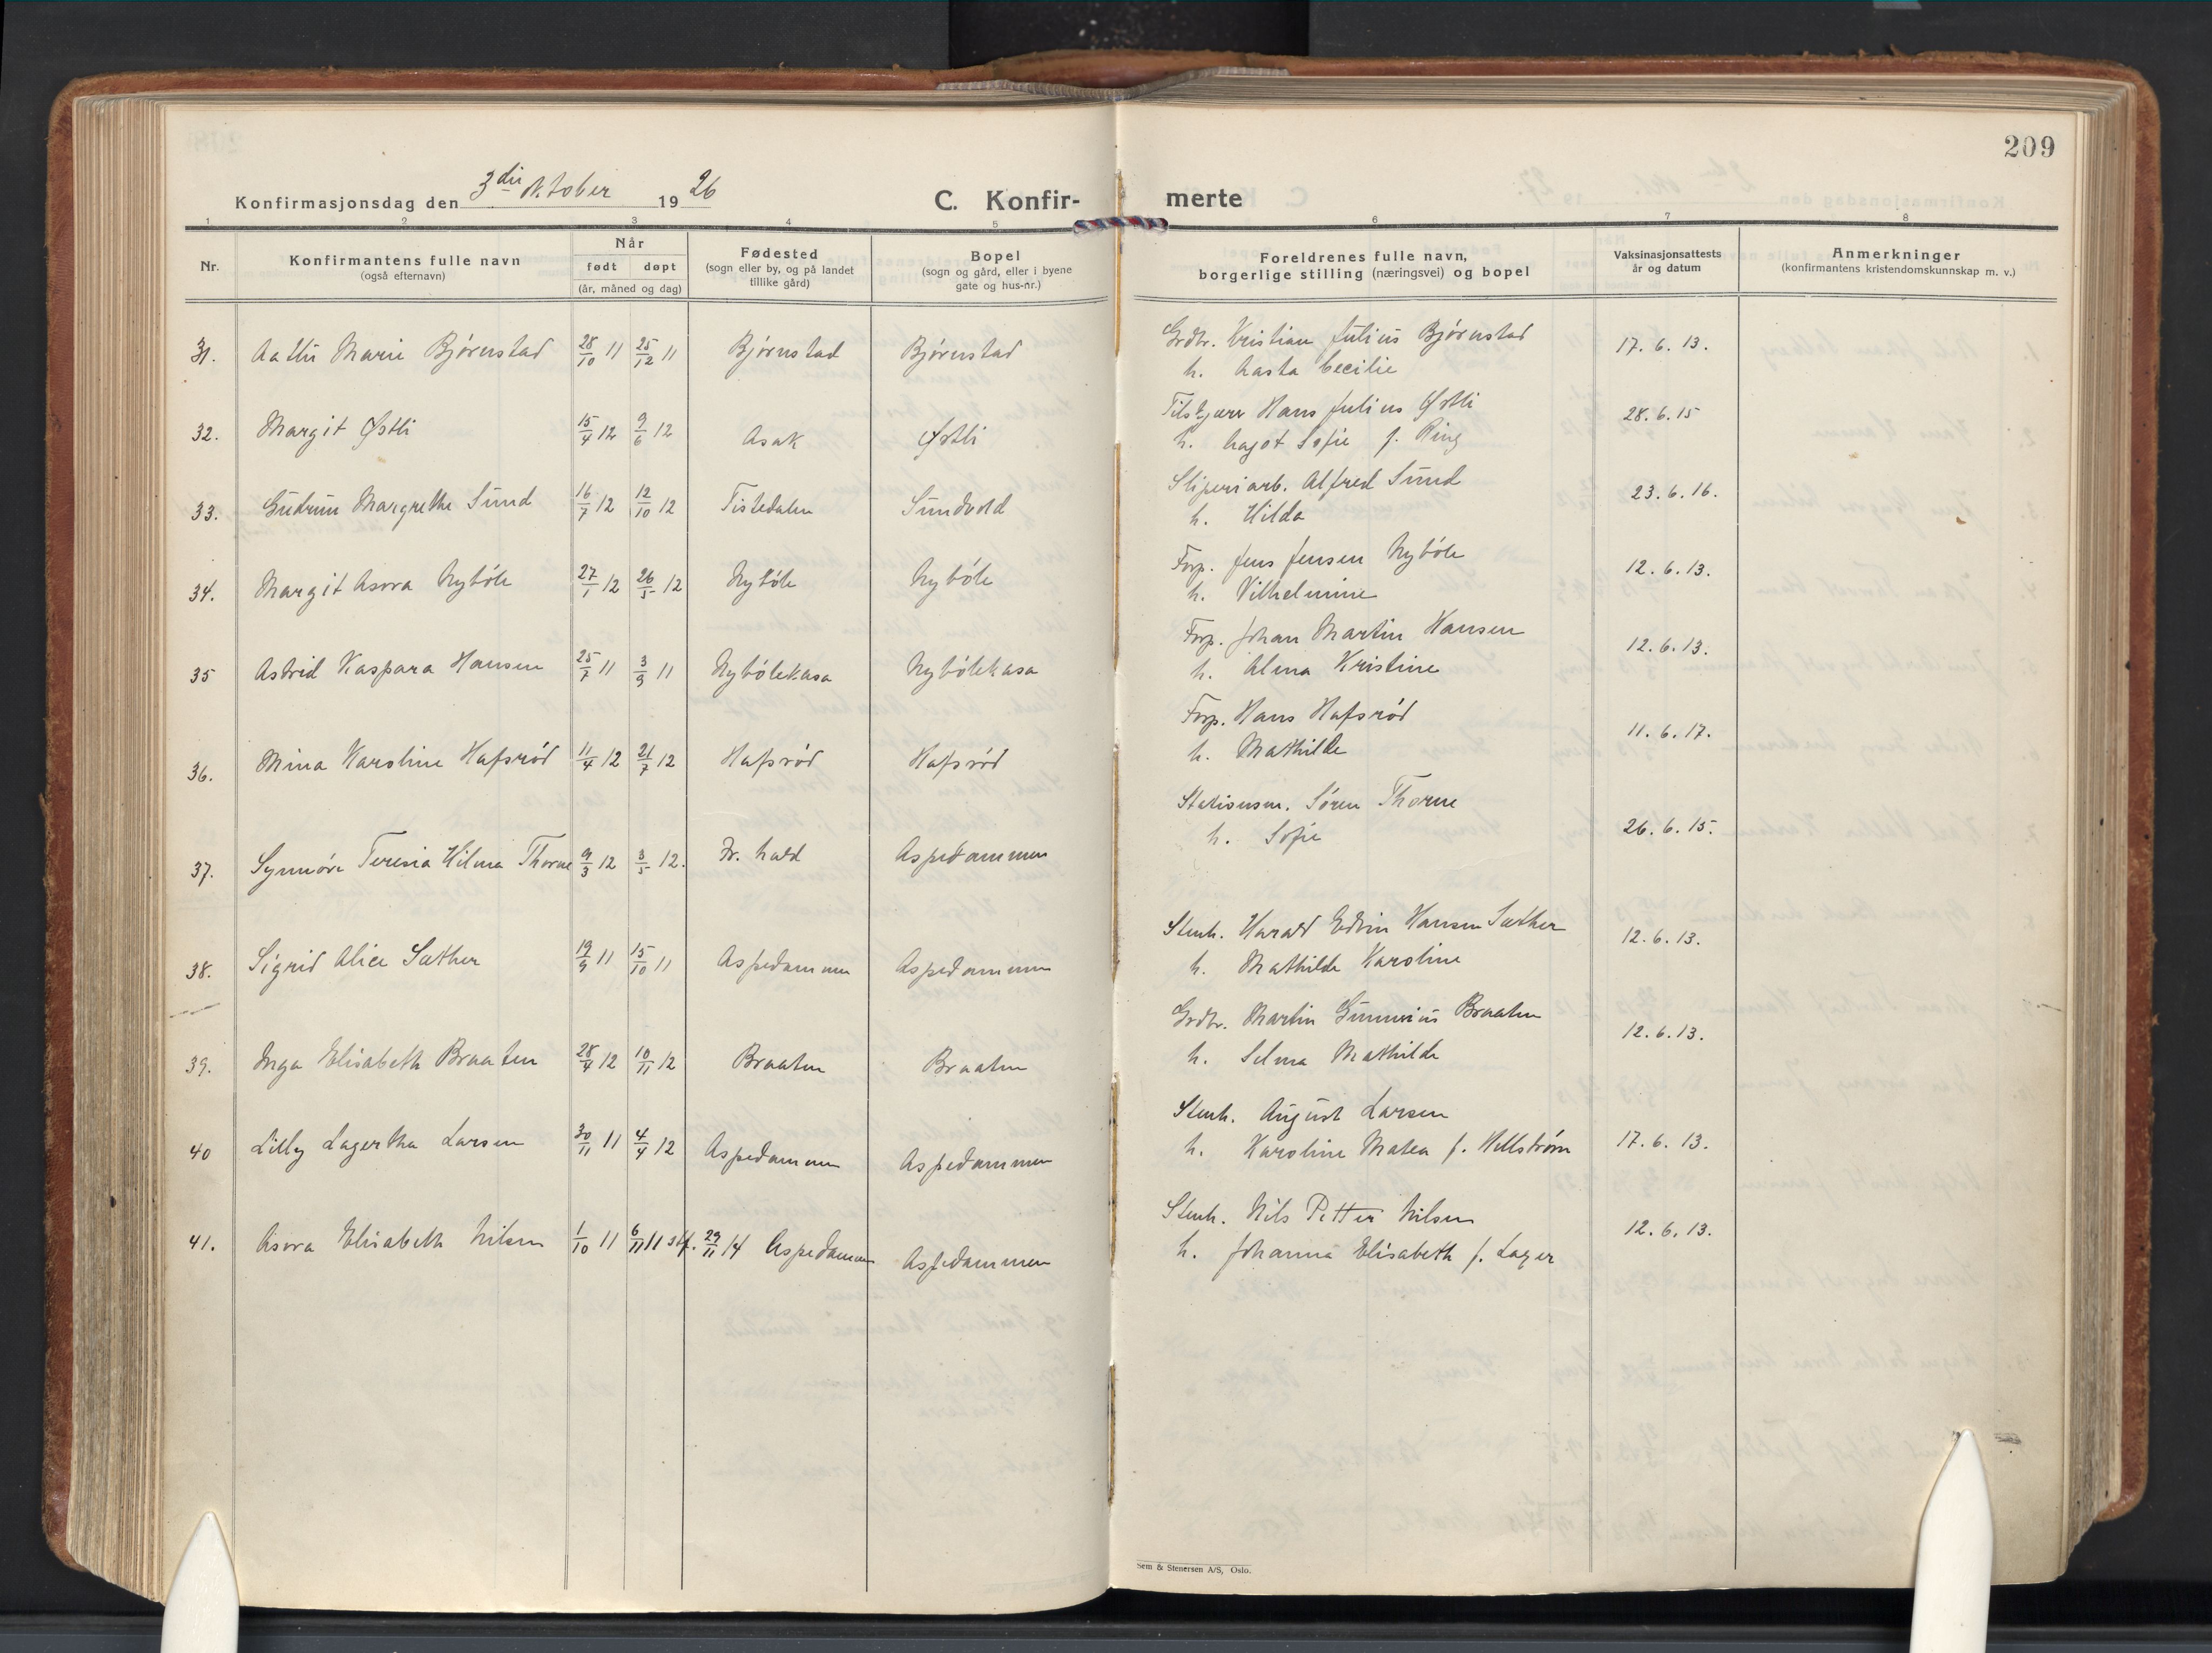 209
Konfirmasjonsdag den 3die Oktober 1926
C. Konfir- merte
1 2 3 4 5 6 7 8
Nr.
Konfirmantens fulle navn
(også efternavn)
Når
født døpt
(år, måned og dag)
Fødested
(sogn eller by, og på landet
tillike gård)
Bopel
(sogn og gård, eller i byene
gate og hus-nr.)
Foreldrenes fulle navn,
borgerlige stilling (næringsvei) og bopel
Vaksinasjonsattests
år og datum
Anmerkninger
(konfirmantens kristendomskunnskap m. v.)
31. Marie Bjørnstad 28/10 11 25/12 11 Bjørnstad Bjørnstad Grdbr. Kristian Julius Bjørnstad 17. 6. 13.
h. Aasta Cecilie
32. Margit Østli 15/4 12 9/6 12 Asak Østli Hans Julius Østli 28. 6. 15
h. Sofie f. Ring
33. Gudrun Margrethe Sund 16/7 12 12/10 12 Tistedalen Sundvold Sliperiarb. Alfred Sund 23. 6. 16.
h. Hilda
34. Margit Asora Nybøle 27/1 12 26/5 12 Nybøle Nybøle Forp. Jens Jensen Nybøle 12. 6. 13.
h. Vilhelmine
35 Astrid Kaspara Hansen 25/7 11 3/9 11 Nybølekasa Nybølekasa Forp. Johan Martin Hansen 12. 6. 13.
h. Alma Kristine
36. Mina Karoline Hafsrød 11/4 12 21/7 12 Hafsrød Hafsrød Forp. Hans Hafsrød 11. 6. 17.
h. Mathilde
37. Synnøve Teresia Hilma Thorne 9/3 12 3/5 12. Fr. hald Aspedammen Stationsm. Søren Thorne 26. 6. 15.
h. Sofie
38. Sigrid Alice Sæther 19/9 11 15/10 11 Aspedammen Aspedammen Stenh. Harald Edvin Hansen Sæther 12. 6. 13.
h. Mathilde Karoline
39. Inga Elisabeth Braaten 28/4 12 10/11 12 Braaten Braaten Grdbr. Martin Gunnerius Braaten 12. 6. 13.
h. Selma Mathilde
40 Lilly Lagertha Larsen 30/11 11 4/4 12 Aspedammen Aspedammen Stenh. August Larsen 17. 6. 13.
h. Karoline Matea f. Hellstrøm
41. Asora Elisabeth Nilsen 1/10 11 6/11 11 stf. 29/11 14 Aspedammen Aspedammen Stenh. Nils Petter Nilsen 12. 6. 13.
h. Johanna Elisabeth f. Lager
Sem & Stenersen A/S, Oslo.